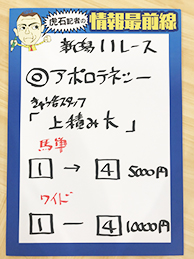 虎石記者の情報最前線
新潟11レース
◎アポロテネシー
きゅう舎スタッフ
「上積み大」
馬単
1 → 4 5000円
ワイド
1 ー 4 10000円